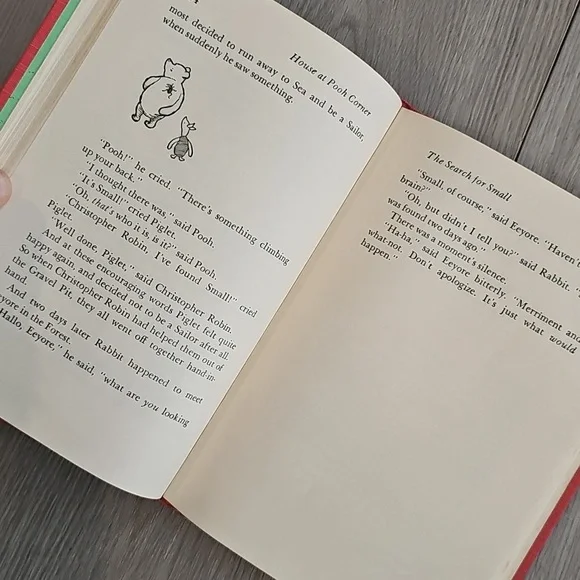 House at Pooh Corner
most decided to run away to Sea and be a Sailor,
when suddenly he saw something.
"Pooh!" he cried. "There's something climbing
up your back."
"I thought there was," said Pooh.
"It's Small!" cried Piglet.
"Oh, that's who it is, is it?" said Pooh.
"Christopher Robin, I've found Small!" cried
Piglet.
"Well done, Piglet," said Christopher Robin.
And at these encouraging words Piglet felt quite
happy again, and decided not to be a Sailor after all.
So when Christopher Robin had helped them out of
the Gravel Pit, they all went off together hand-in-
hand.
And two days later Rabbit happened to meet
eyore in the Forest.
Hallo, Eeyore," he said, "what are you looking
The Search for Small
"Small, of course," said Eeyore. "Haven't
brain?"
"Oh, but didn't I tell you?" said Rabbit. "
was found two days ago."
There was a moment's silence.
"Ha-ha," said Eeyore bitterly. "Merriment and
what-not. Don't apologize. It's just what would
happen."